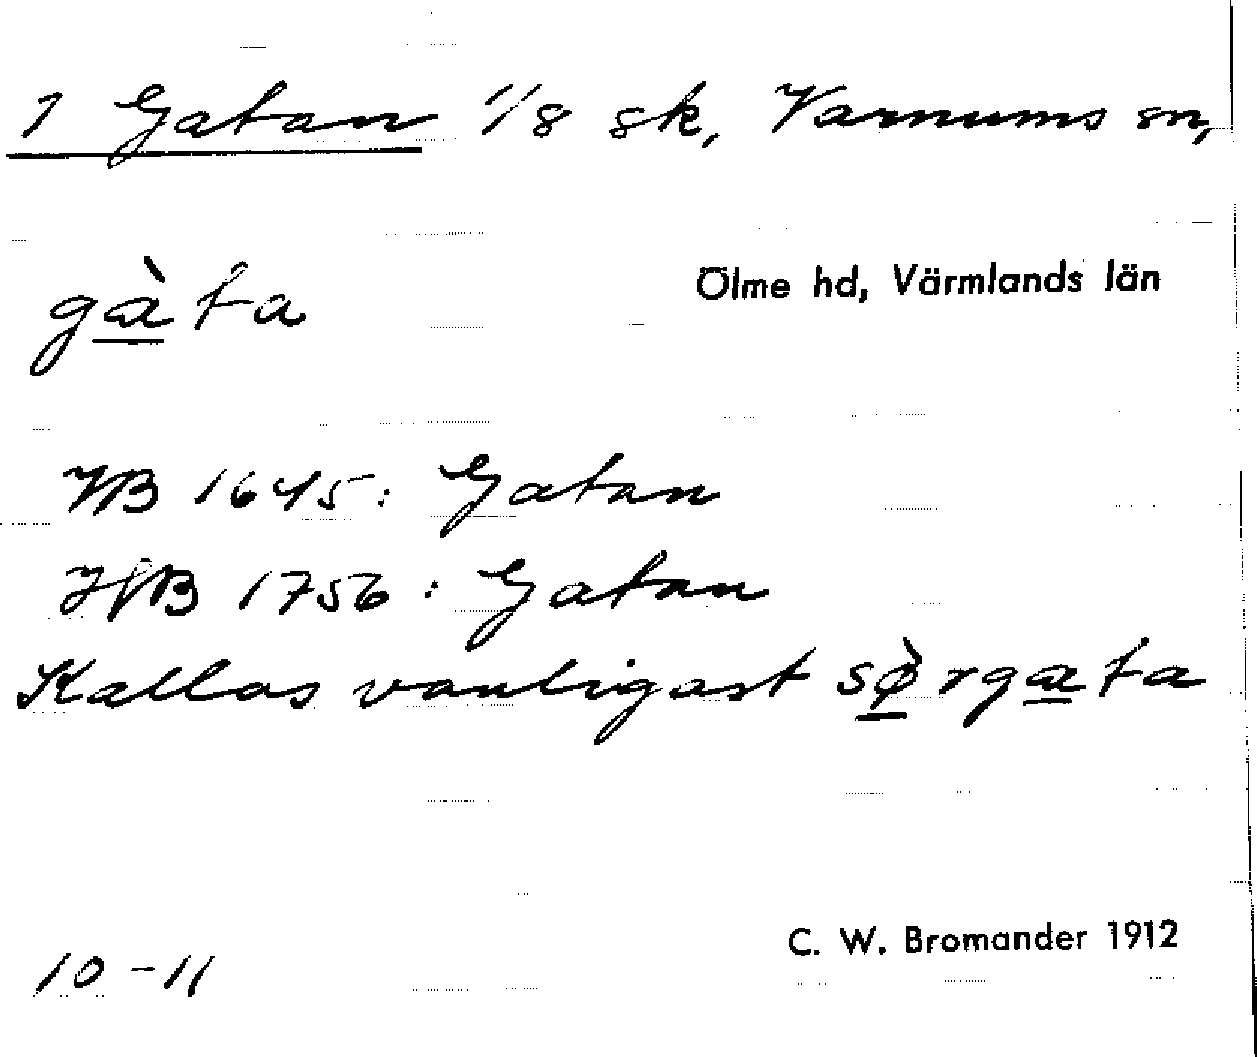 1 Gatan 1/8 sk, Varnums sn,
Ölme hd, Värmlands län
gàta
JB 1645: Gatan
JfB 1756: Gatan
Kallas vanligast sø̀rgata
C. W. Bromander 1912
10-11